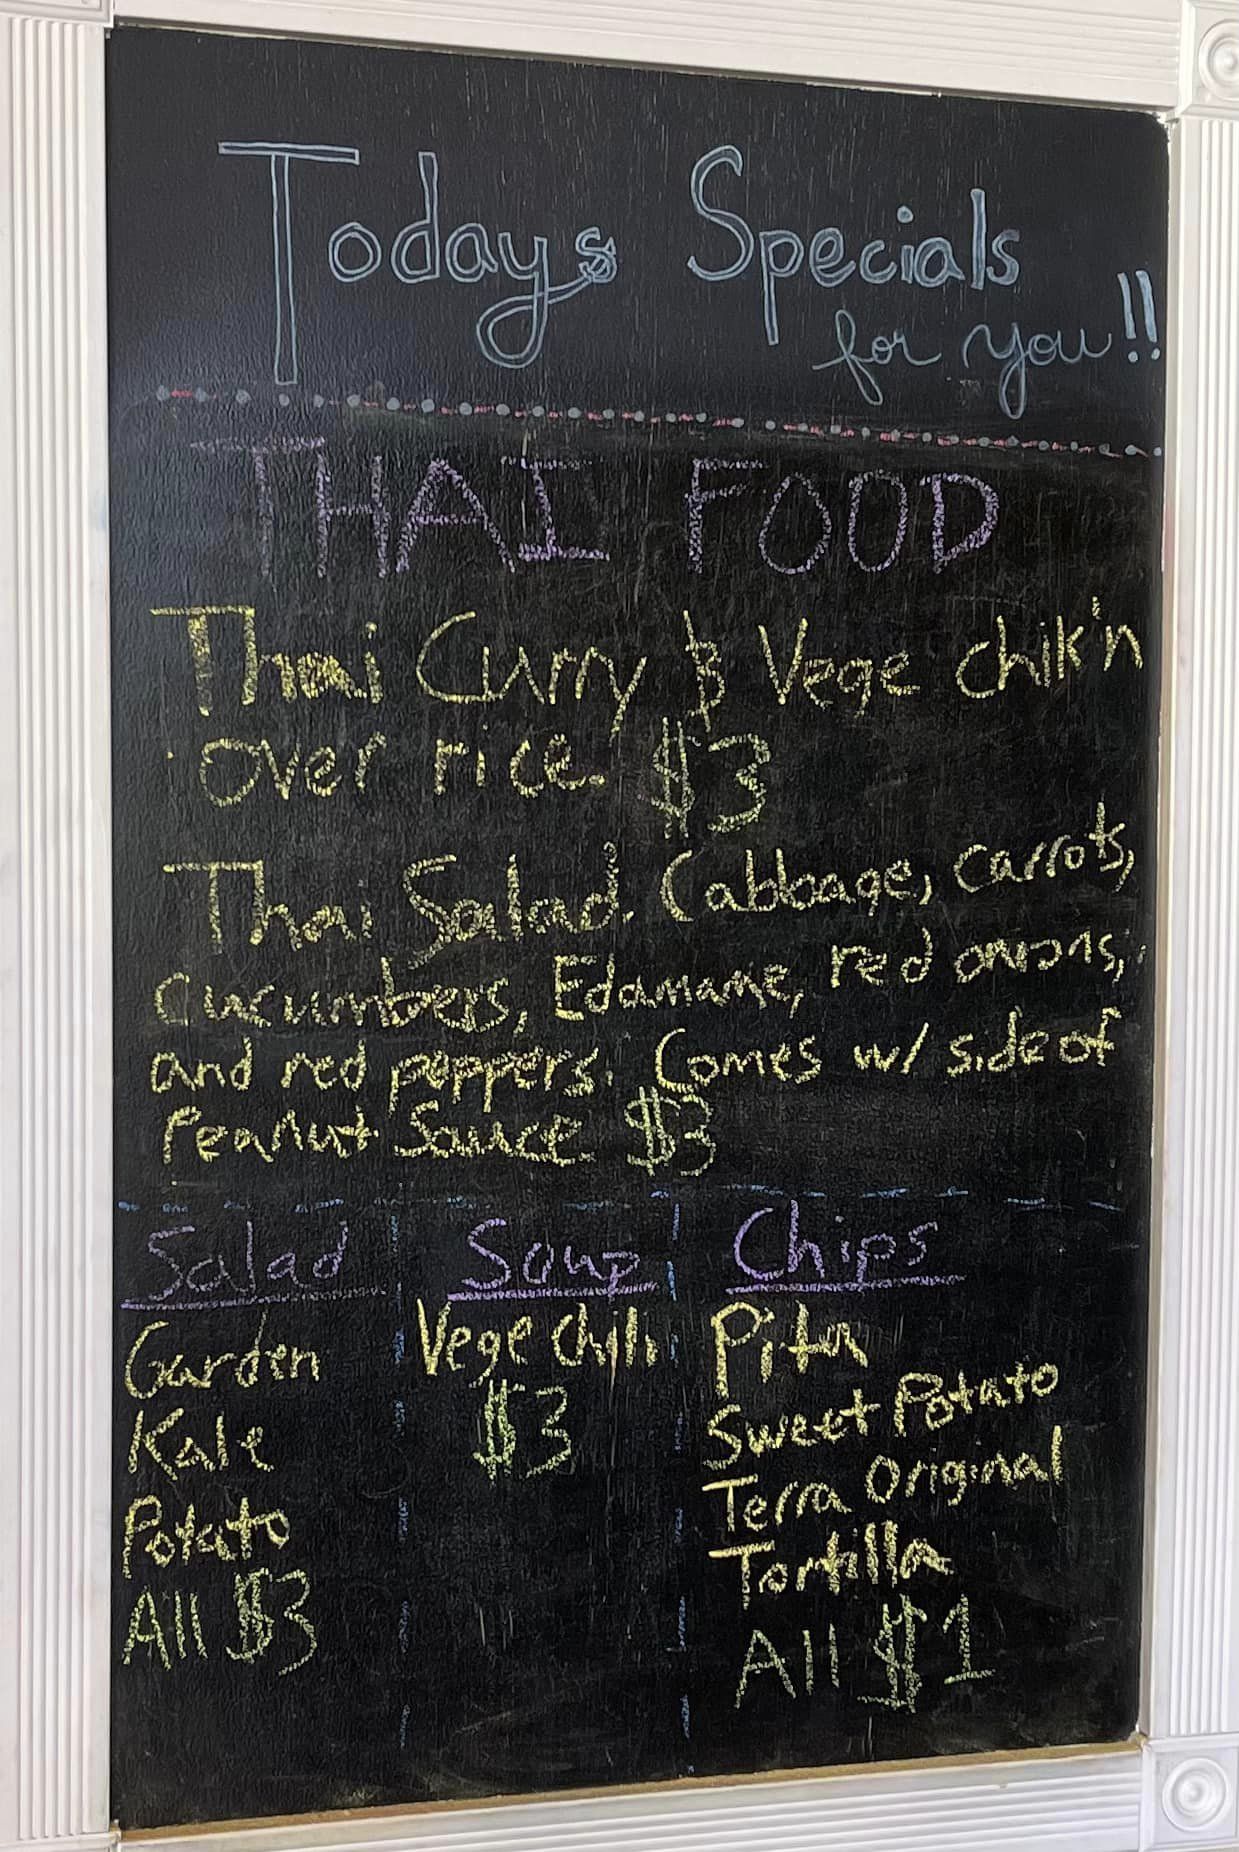 Todays Specials
for you!!
THAI FOOD
Thai Curry & Vege chik'n
over rice. $3
Thai Salad. Cabbage, carrots,
cucumbers, Edamame, red onions,
and red peppers. Comes w/ side of
Peanut Sauce. $3
Salad
Garden
Kale
Potato
All $3
Soup
Vege Chili
$3
Chips
Pita
Sweet Potato
Terra Original
Tortilla
All $1